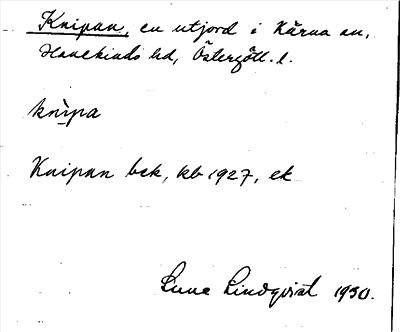 Knipan, en utjord i Kärna sn,
Hanekinds hd, Östergötl. l.
knìpa
Knipan bek, kb 1927, ek
Sune Lindqvist 1930.